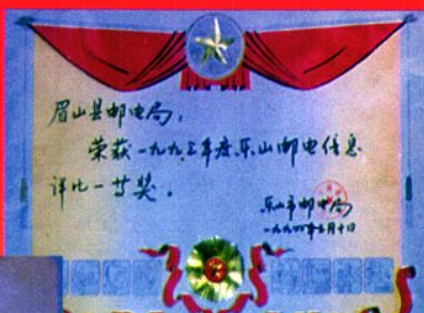 眉山县邮电局：
荣获一九九三年度乐山邮电信息
评比一等奖。
乐山市邮电局
一九九四年三月十日